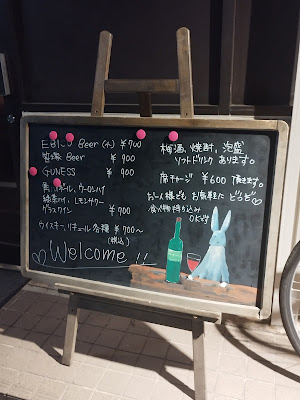 Beer (小) ¥700
Beer ¥ 900
GUNESS ¥ 900
ハイボール、ウーロンハイ
緑茶ハイ、レモンサワー
グラスワイン ¥700
ウイスキー、リキュール各種 ¥700〜
(税込)
Welcome!!
梅酒、焼酎、泡盛
ソフトドリンク あります。
席チャージ ¥600 頂きます。
お一人様も お気軽に どうぞ♡
食べ物持ち込み
OKです